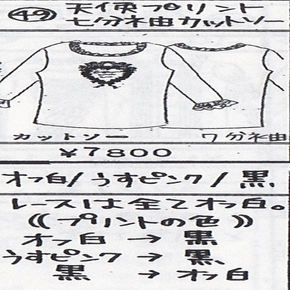 ㊾ 天使プリント
七分袖カットソー
カットソー 7分袖
¥7800
オフ白/うすピンク/黒
レースは全てオフ白。
《プリントの色》
オフ白 → 黒
うすピンク → 黒
黒 → オフ白